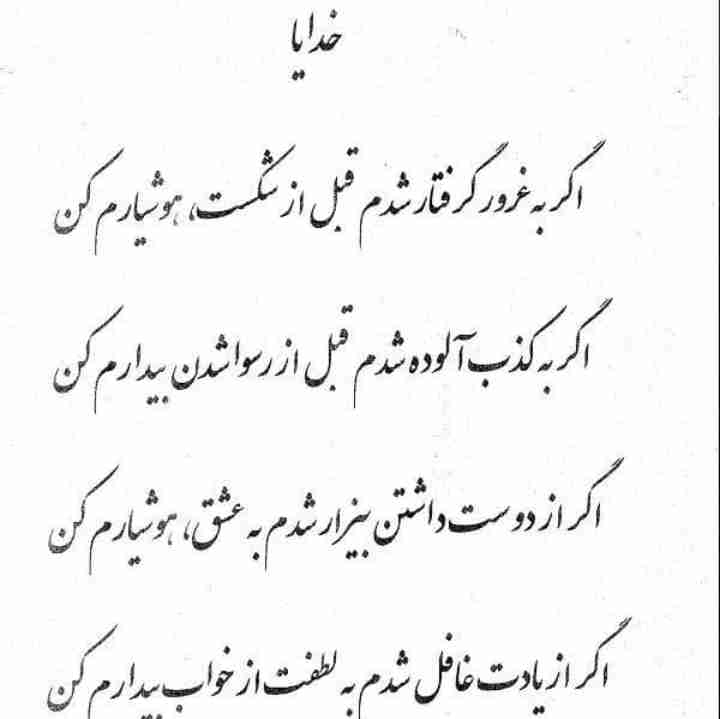 خدایا
اگر به غرور گرفتار شدم قبل از شکست، هوشیارم کن
اگر به کذب آلوده شدم قبل از رسوا شدن بیدارم کن
اگر از دوست داشتن بیزار شدم به عشق، هوشیارم کن
اگر از یادت غافل شدم به لطفت از خواب بیدارم کن